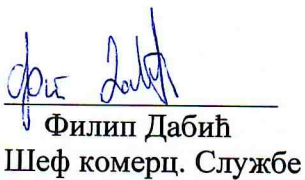 Филип Дабић
Шеф комерц. Службе